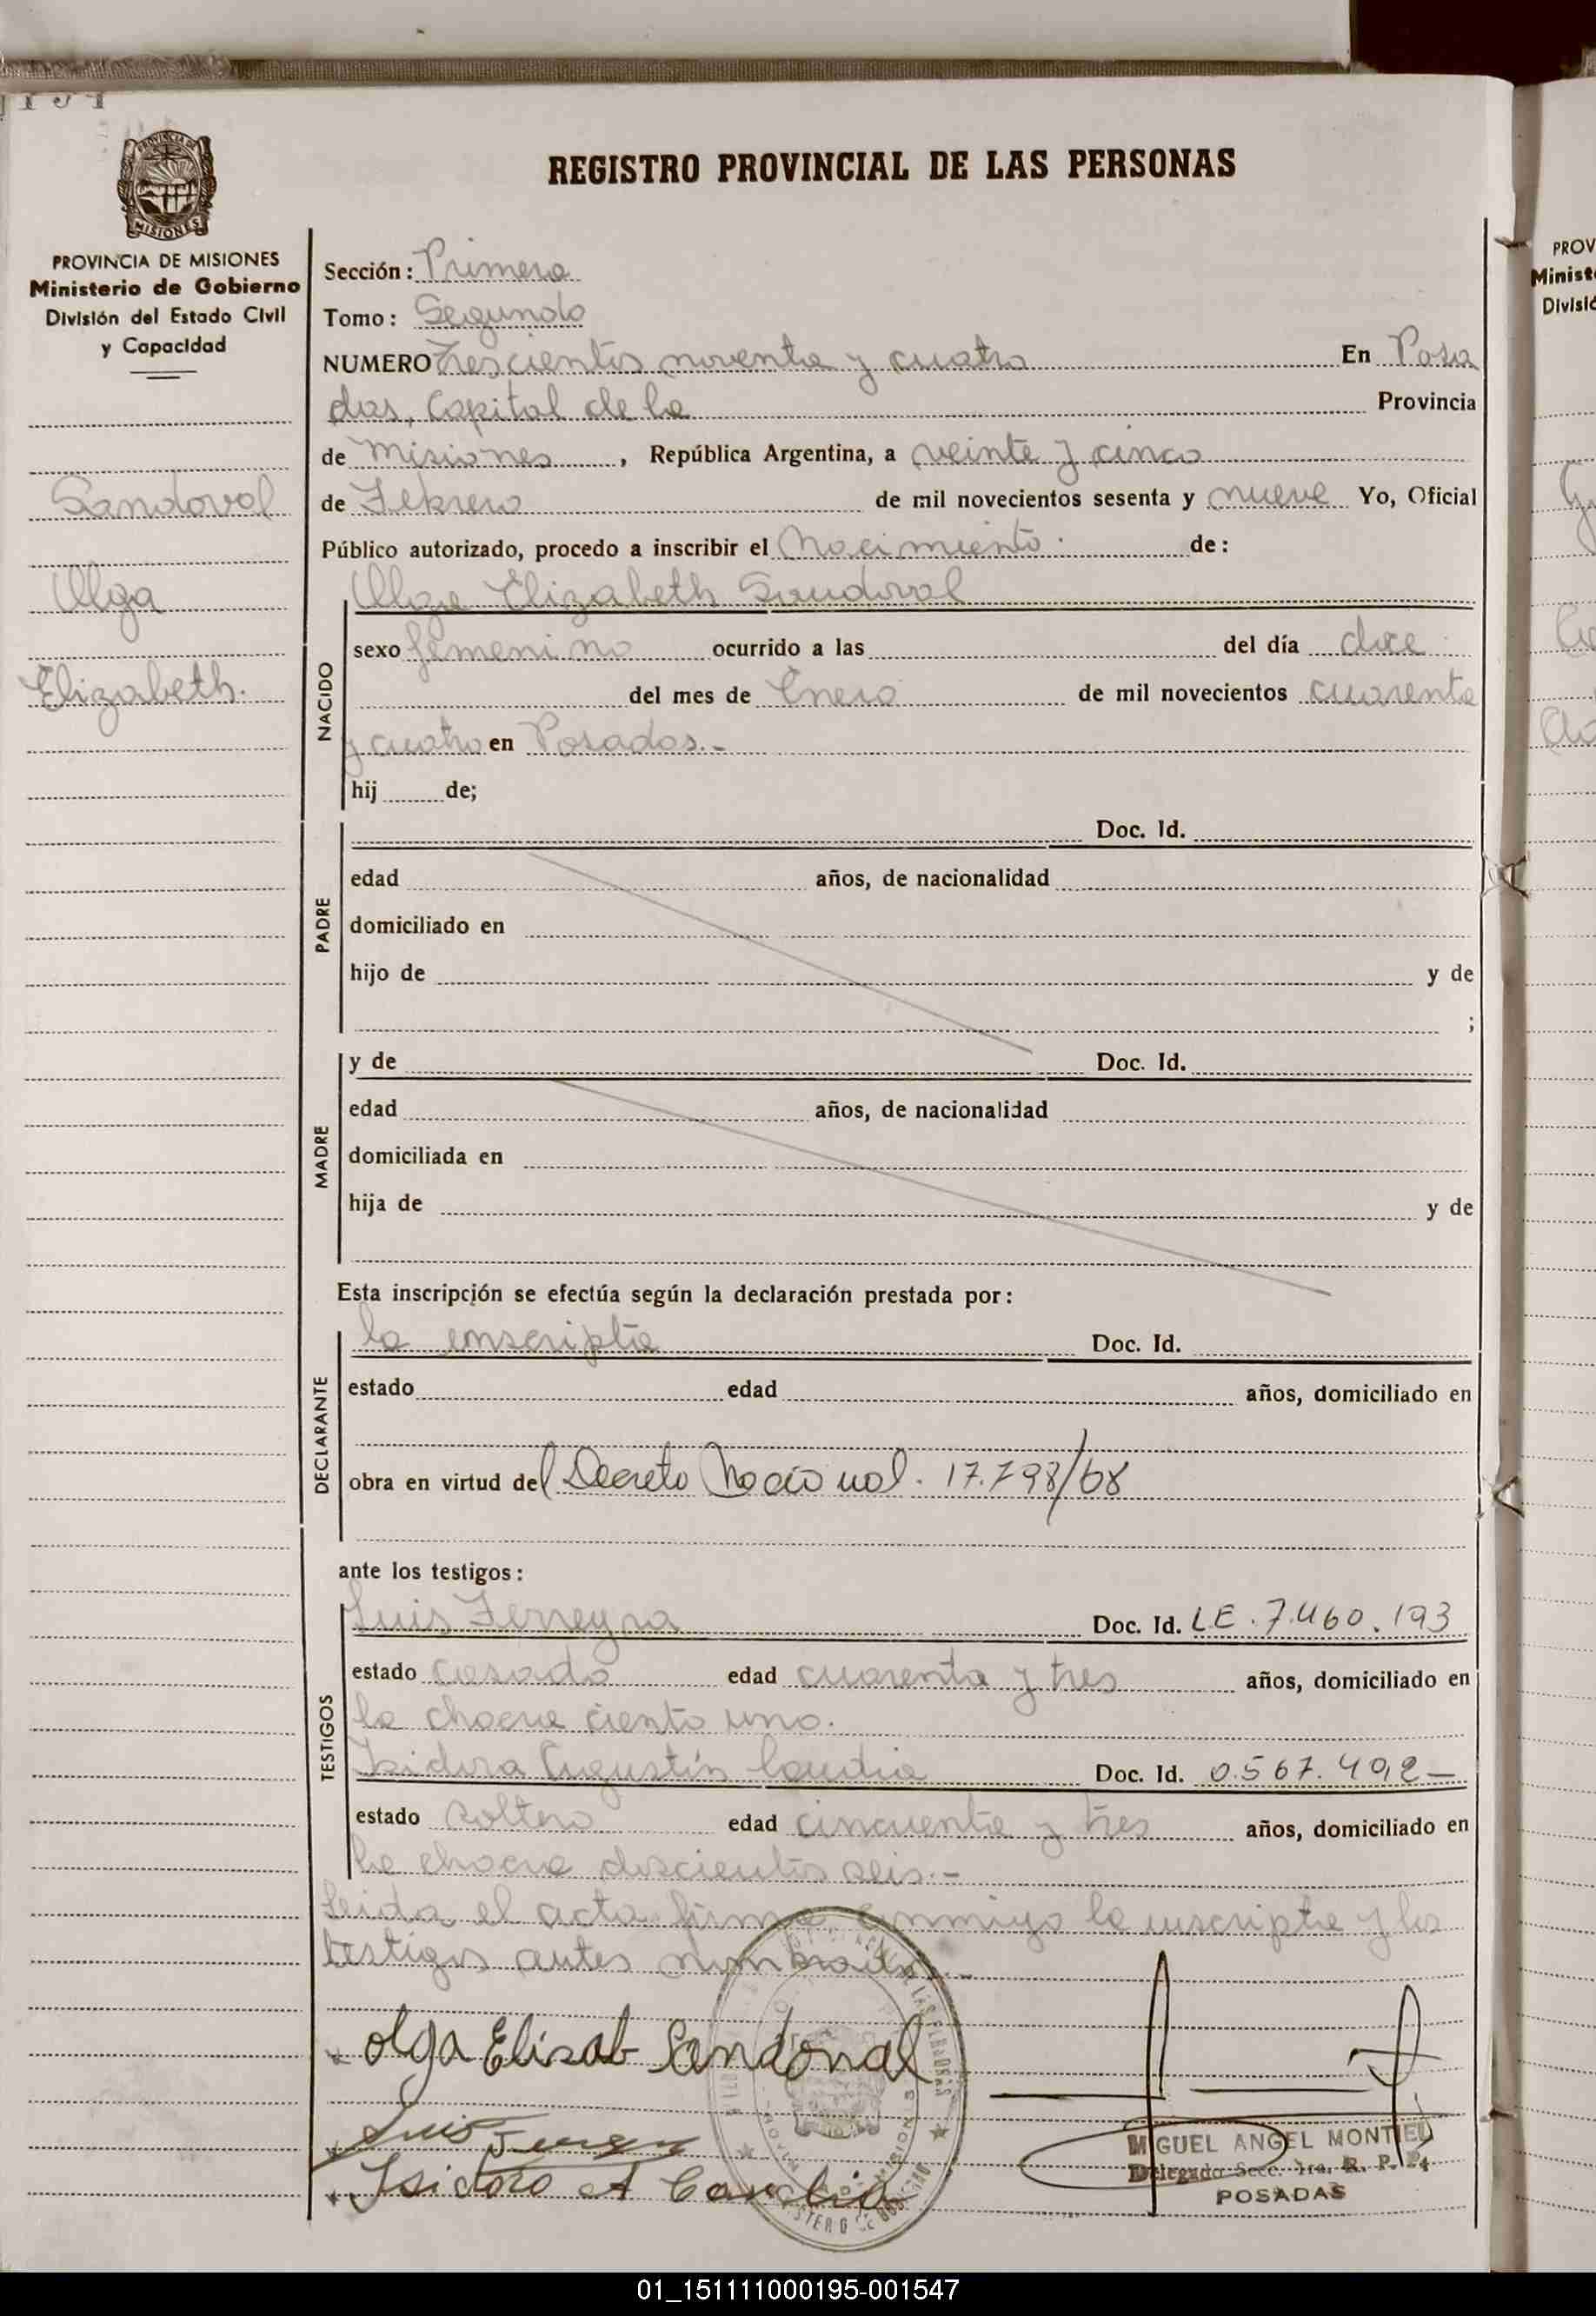 REGISTRO PROVINCIAL DE LAS PERSONAS
MISIONES
PROVINCIA DE MISIONES
Ministerio de Gobierno
División del Estado Civil
y Capacidad
Sandoval
Olga
Elizabeth.
Sección: Primera
Tomo: Segundo
NUMERO Trescientos noventa y cuatro En Posa
das, Capital de la Provincia
de Misiones, República Argentina, a veinte y cinco
de Febrero de mil novecientos sesenta y nueve Yo, Oficial
Público autorizado, procedo a inscribir el Nacimiento de:
NACIDO
Olga Elizabeth Sandoval
sexo femenino ocurrido a las del día doce
del mes de Enero de mil novecientos cuarenta
y cuatro en Posadas.-
hij de;
PADRE
Doc. Id.
edad años, de nacionalidad
domiciliado en
hijo de y de
;
MADRE
y de Doc. Id.
edad años, de nacionalidad
domiciliada en
hija de y de
Esta inscripción se efectúa según la declaración prestada por:
DECLARANTE
la inscripta Doc. Id.
estado edad años, domiciliado en
obra en virtud del Decreto Nacional. 17.798/68
ante los testigos:
TESTIGOS
Luis Ferreyra Doc. Id. LE. 7.460.193
estado casado edad cuarenta y tres años, domiciliado en
la chacra ciento uno.
Isidoro Augustín Doc. Id. 0.567.402-
estado soltero edad cincuenta y tres años, domiciliado en
la chacra doscientos seis.-
Leida el acta firma conmigo la inscripta y los
testigos antes nombrados.-
Olga Elisab Sandoval
Luis
Isidoro A
MIGUEL ANGEL MONTIEL
Delegado Secc. 1ra. R. P. P.
POSADAS
PROV
Ministe
Divisió
01_151111000195-001547